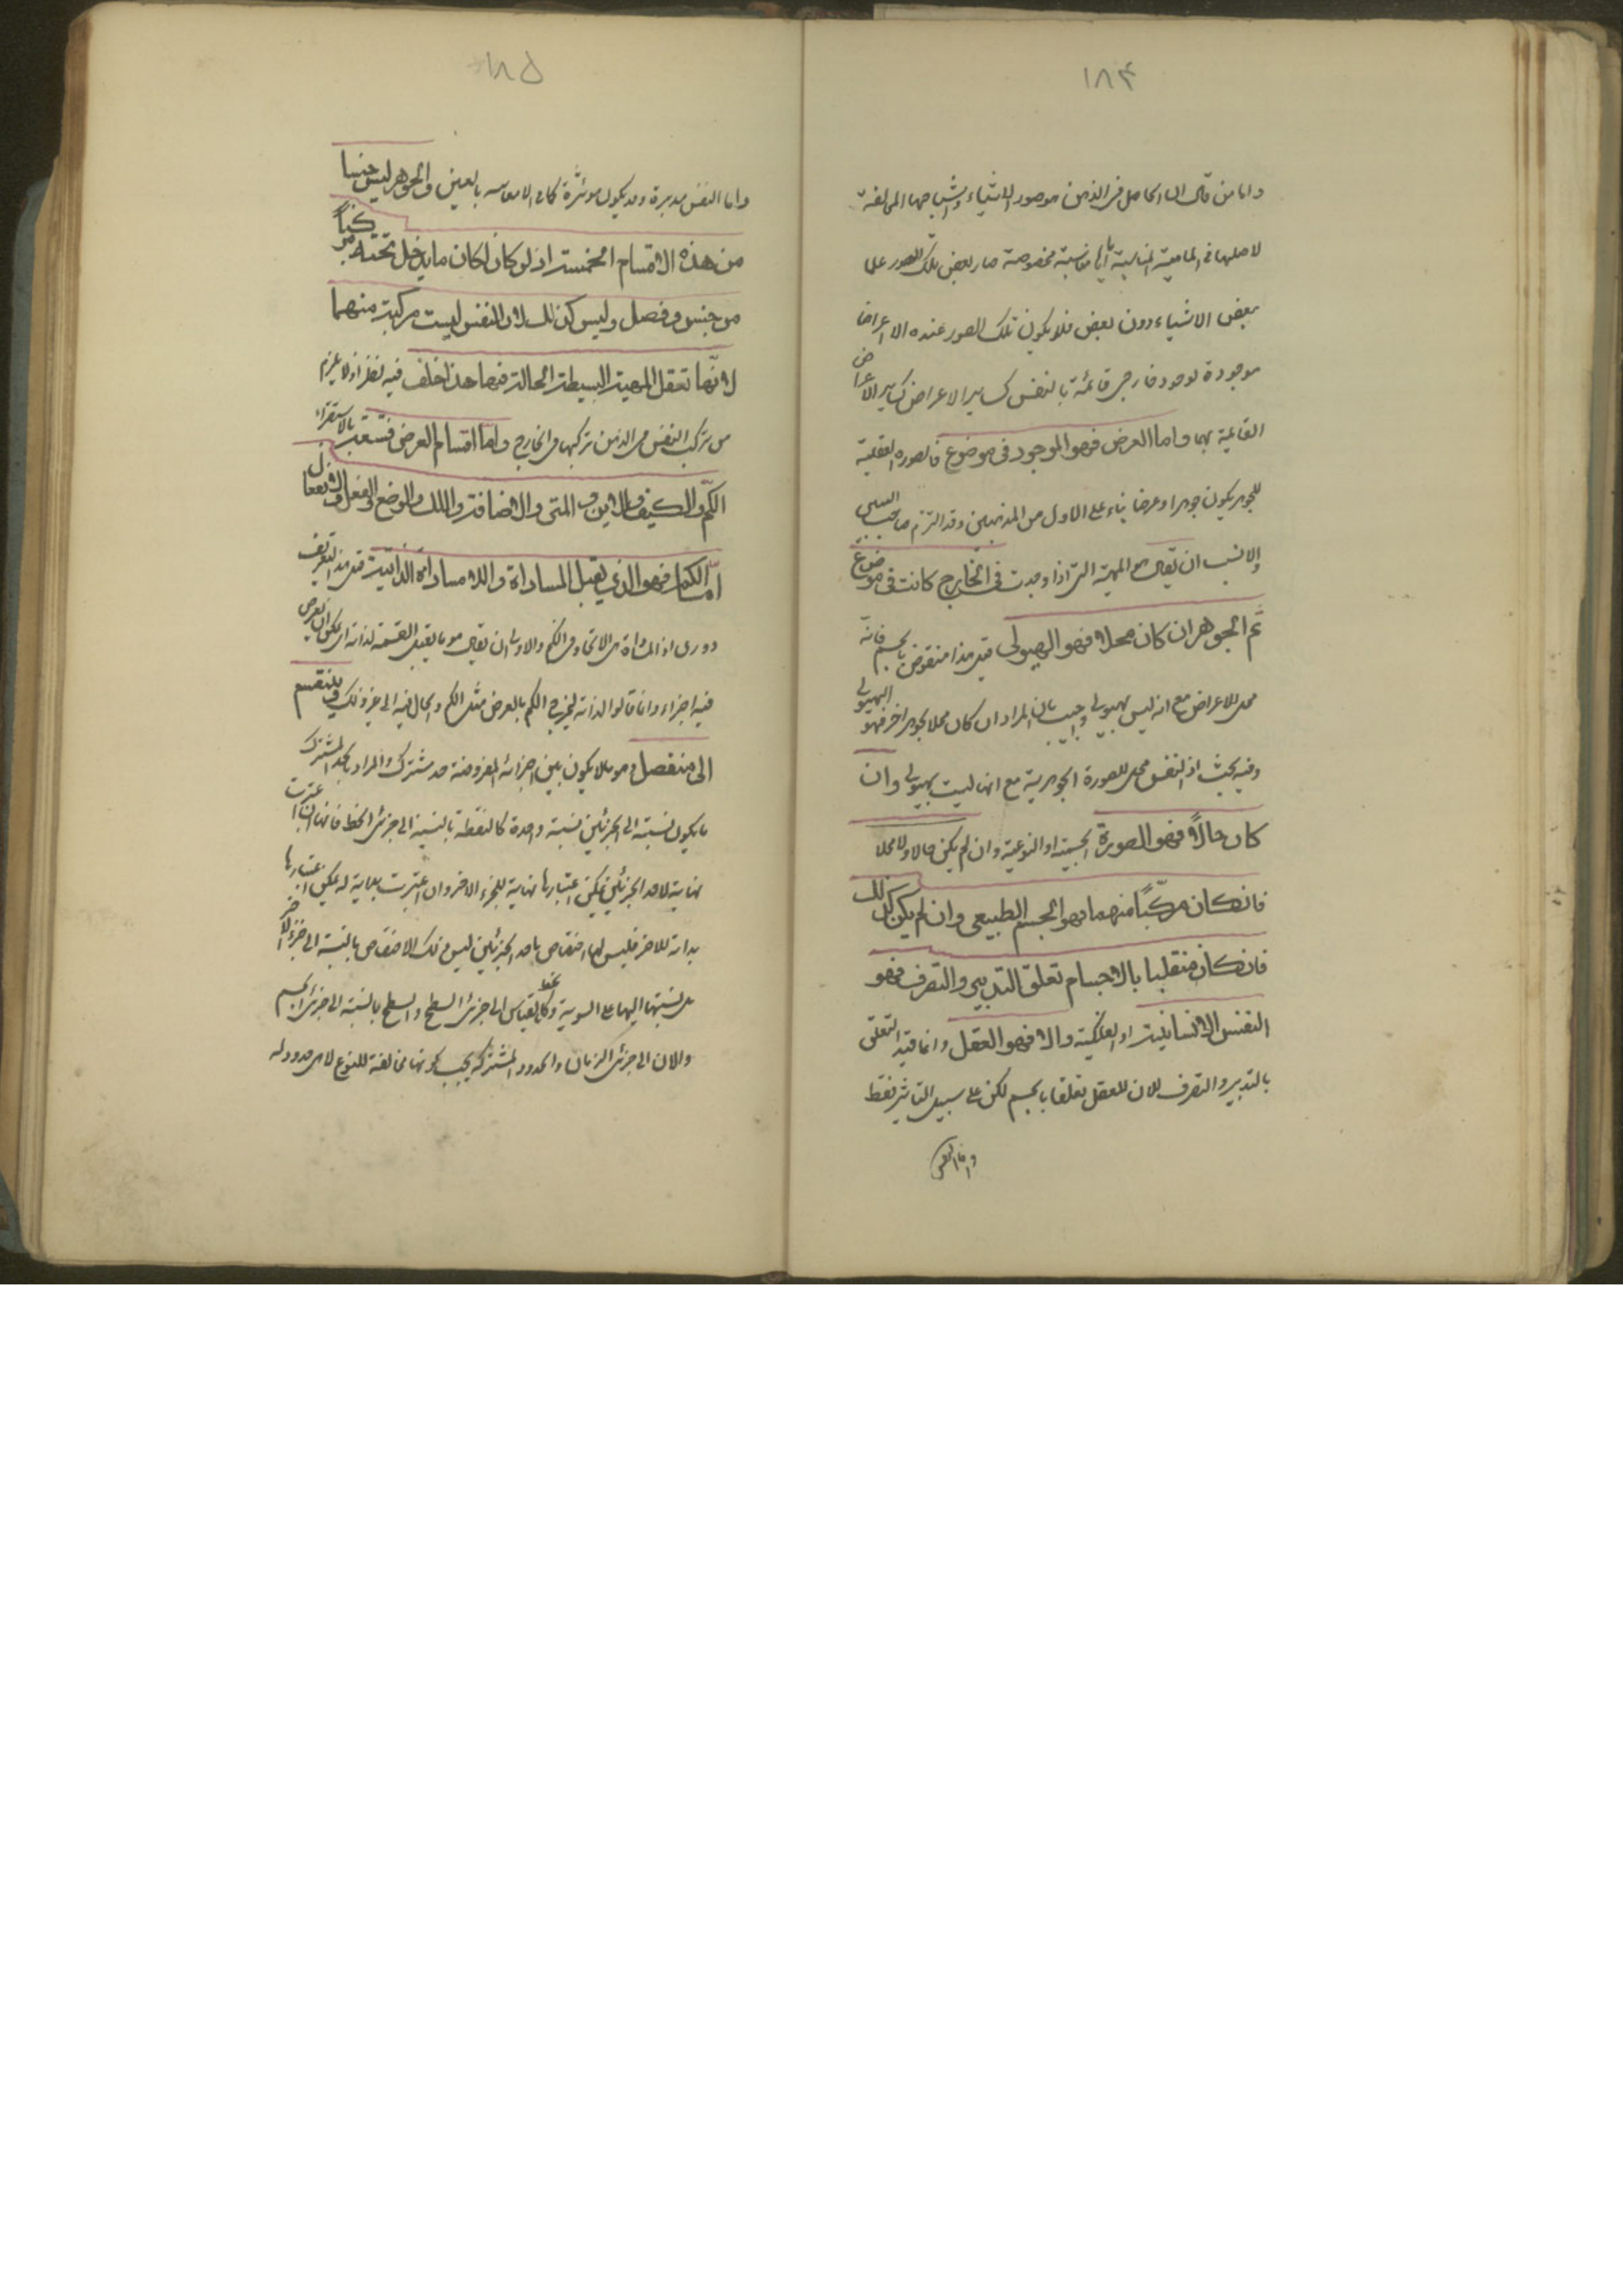 ١٨٤
واما من قال ان الحاصل فى الذهن هو صور الاشياء واشباحها المخالفة
لاصلها فى الماهية المناسبة اياها مناسبة مخصوصة صار بعض تلك الصور علما
ببعض الاشياء دون بعض فلا يكون تلك الصور عنده الا اعراضا
موجودة لوجود خارجى قائمة بالنفس كساير الاعراض كساير الاعراض
القائمة بها واما العرض فهو الموجود فى موضوع فالصورة العقلية
للجوهر يكون جوهرا وعرضا بناء على الاول من المذهبين وقد التزم صاحب
والانسب ان يقال هى المهية التى اذا وجدت فى الخارج كانت فى موضوع
ثم الجوهر ان كان محلا فهو الهيولى قيل هذا منقوض بالجسم فانه
محل للاعراض مع انه ليس بهيولى واجيب بان المراد ان كان محلا لجوهر اخر فهو الهيولى
وفيه بحث اذ النفس محل للصورة الجوهرية مع انها ليست بهيولى وان
كان حالا فهو الصورة الجسمية او النوعية وان لم يكن حالا ولا محلا
فانكان مركبا منهما فهو الجسم الطبيعى وان لم يكن كذلك
فانكان متعلقا بالاجسام تعلق التدبير والتصرف فهو
النفس الانسانية او الفلكية والا فهو العقل وانما قيد التعلق
بالتدبير والتصرف لان للعقل تعلقا بالجسم لكن على سبيل التاثير فقط
واما النفس
١٨٥
واما النفس مدبرة وقد يكون مؤثرة كما فى الاصابة بالعين والجوهر ليس جنسا
من هذه الاقسام الخمسة اذ لو كان لكان ما يدخل تحته مركبا
من جنس وفصل وليس كذلك لان النفس ليست مركبة منهما
لانها تعقل المهية البسيطة الحالة فيها هذا خلف فيه نظر اذ لا يلزم
من تركب النفس فى الذهن تركبها فى الخارج واما اقسام العرض فتسعة بالاستقراء
الكم والكيف والاين والمتى والاضافة والملك والوضع والفعل والانفعال
اما الكم فهو الذى يقبل المساواة واللامساواة لذاتية قيل هذا التعريف
دورى اذ المساواة هى الاتحاد فى الكم والاولى ان يقال هو ما يقبل القسمة لذاته اى يمكن ان يعرض
فيه اجزاء وانما قالوا لذاته ليخرج الكم بالعرض مثل محل الكم والحال فيه الى غير ذلك وينقسم
الى منفصل وهو ما لا يكون بين اجزائه المفروضة حد مشترك والمراد بالحد المشترك
ما يكون نسبته الى الجزئين نسبة واحدة كالنقطة بالنسبة الى جزئى الخط فانها ان اعتبرت
نهاية لاحد الجزئين يمكن اعتبارها نهاية للجزء الاخر وان اعتبرت بداية له يمكن اعتبارها
بداية للاخر فليس لها اختصاص باحد الجزئين ليس ذلك الاختصاص بالنسبة الى جزء الاخر
بل نسبتها اليهما على السوية وكالخط بالقياس الى جزئى السطح والسطح بالنسبة الى جزئى الجسم
والان الى جزئى الزمان والحدود المشتركة يجب كونها مخالفة للنوع لما هى حدود له